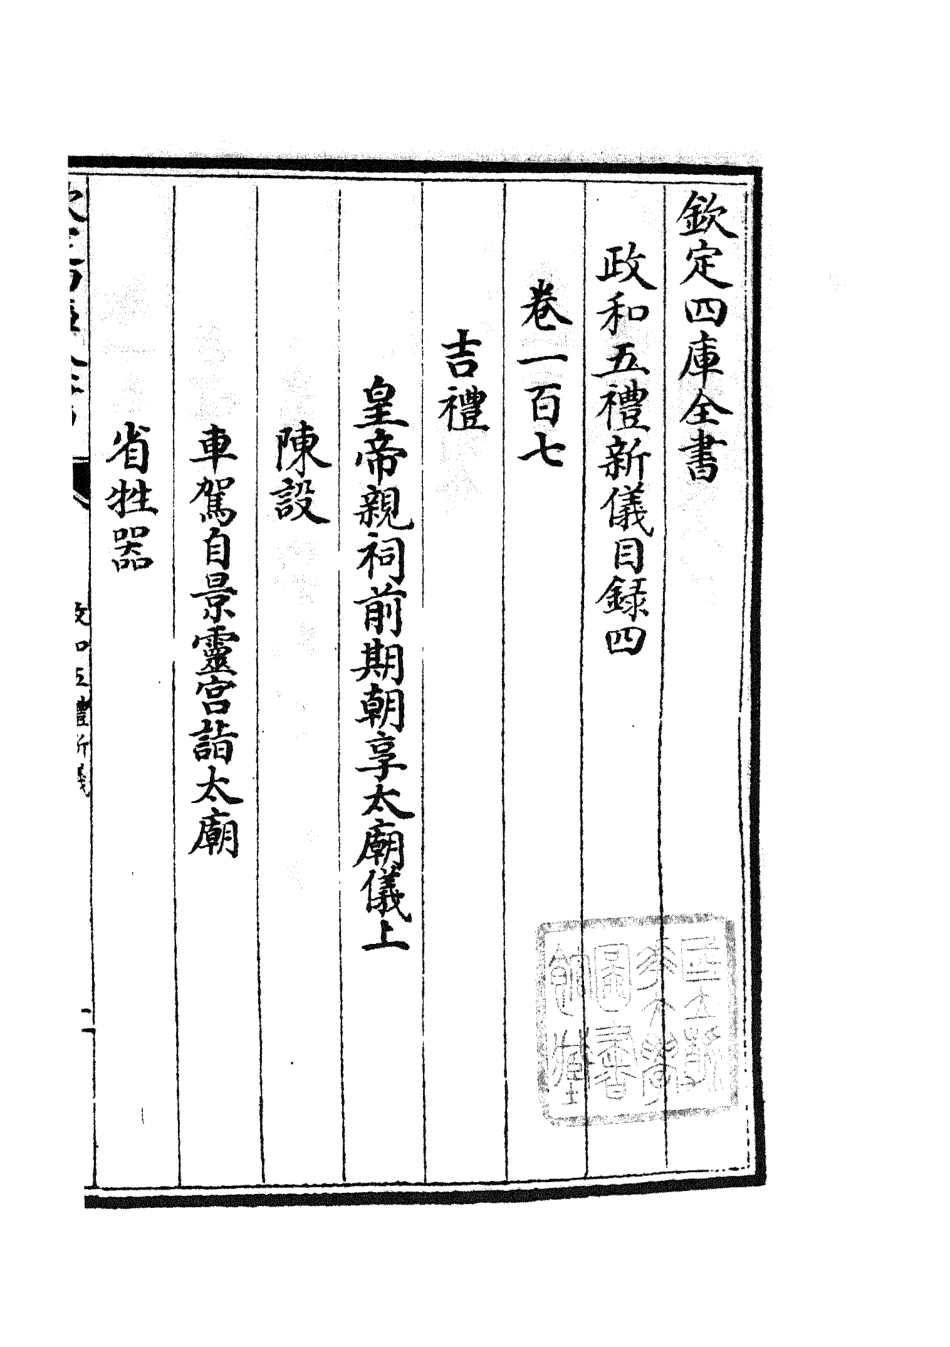 欽定四庫全書
政和五禮新儀目録四
卷一百七
吉禮
皇帝親祠前期朝享太廟儀上
陳設
車駕自景靈宫詣太廟
省牲器